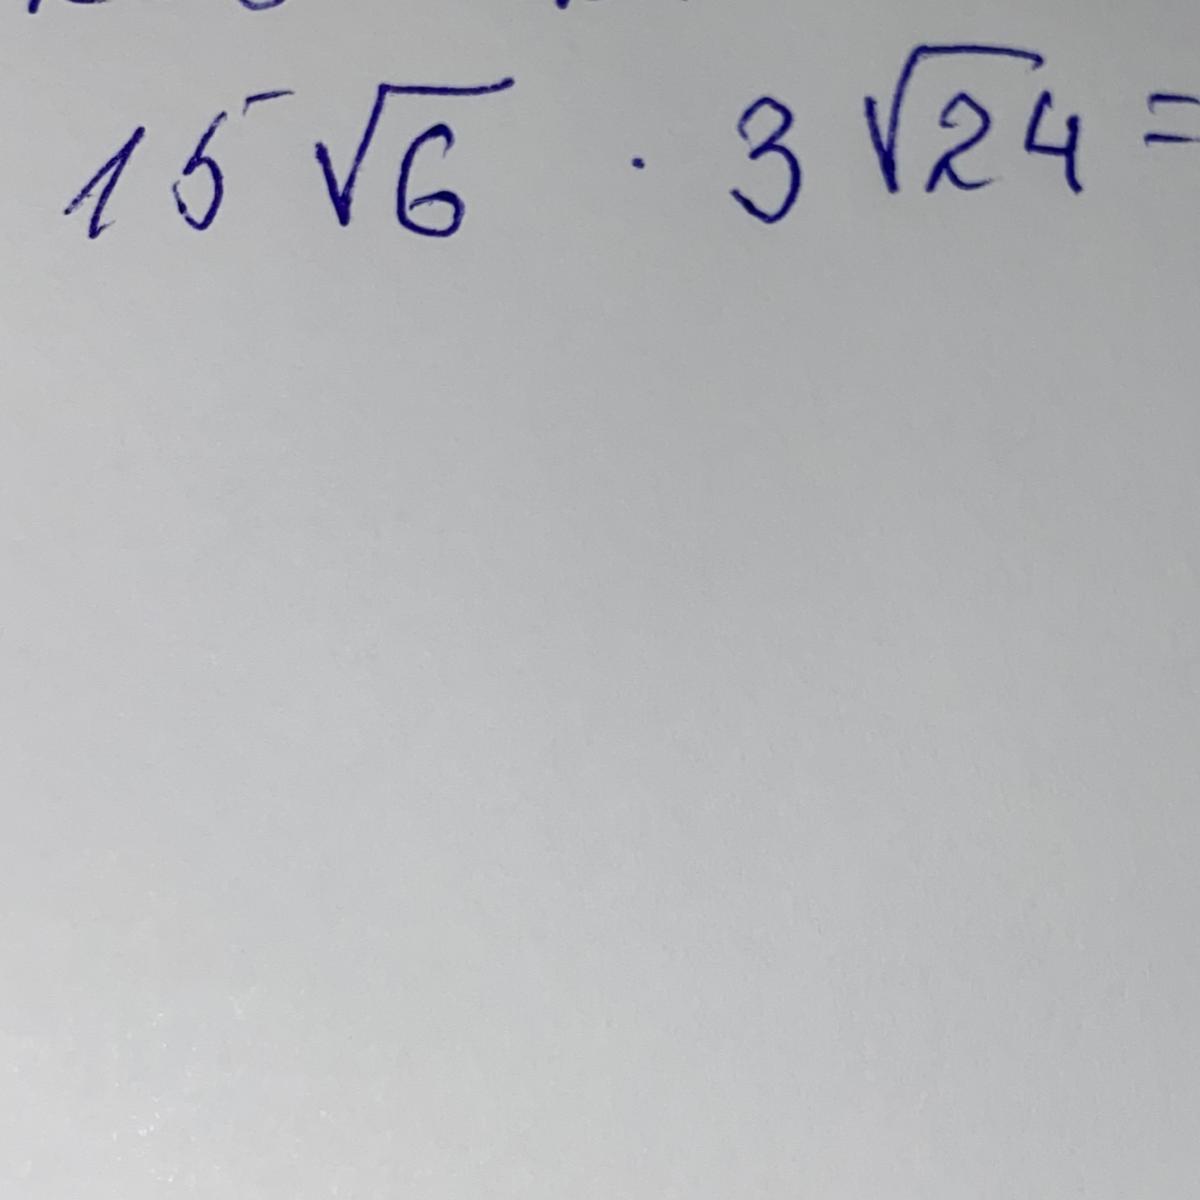 15 √6 · 3 √24 =